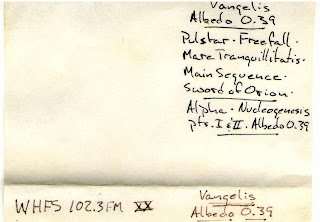 Vangelis
Albedo 0.39
Pulstar · Freefall ·
Mare Tranquillitatis ·
Main Sequence ·
Sword of Orion ·
Alpha · Nucleogenesis
pts. I & II · Albedo 0.39
WHFS 102.3 FM XX
Vangelis
Albedo 0.39